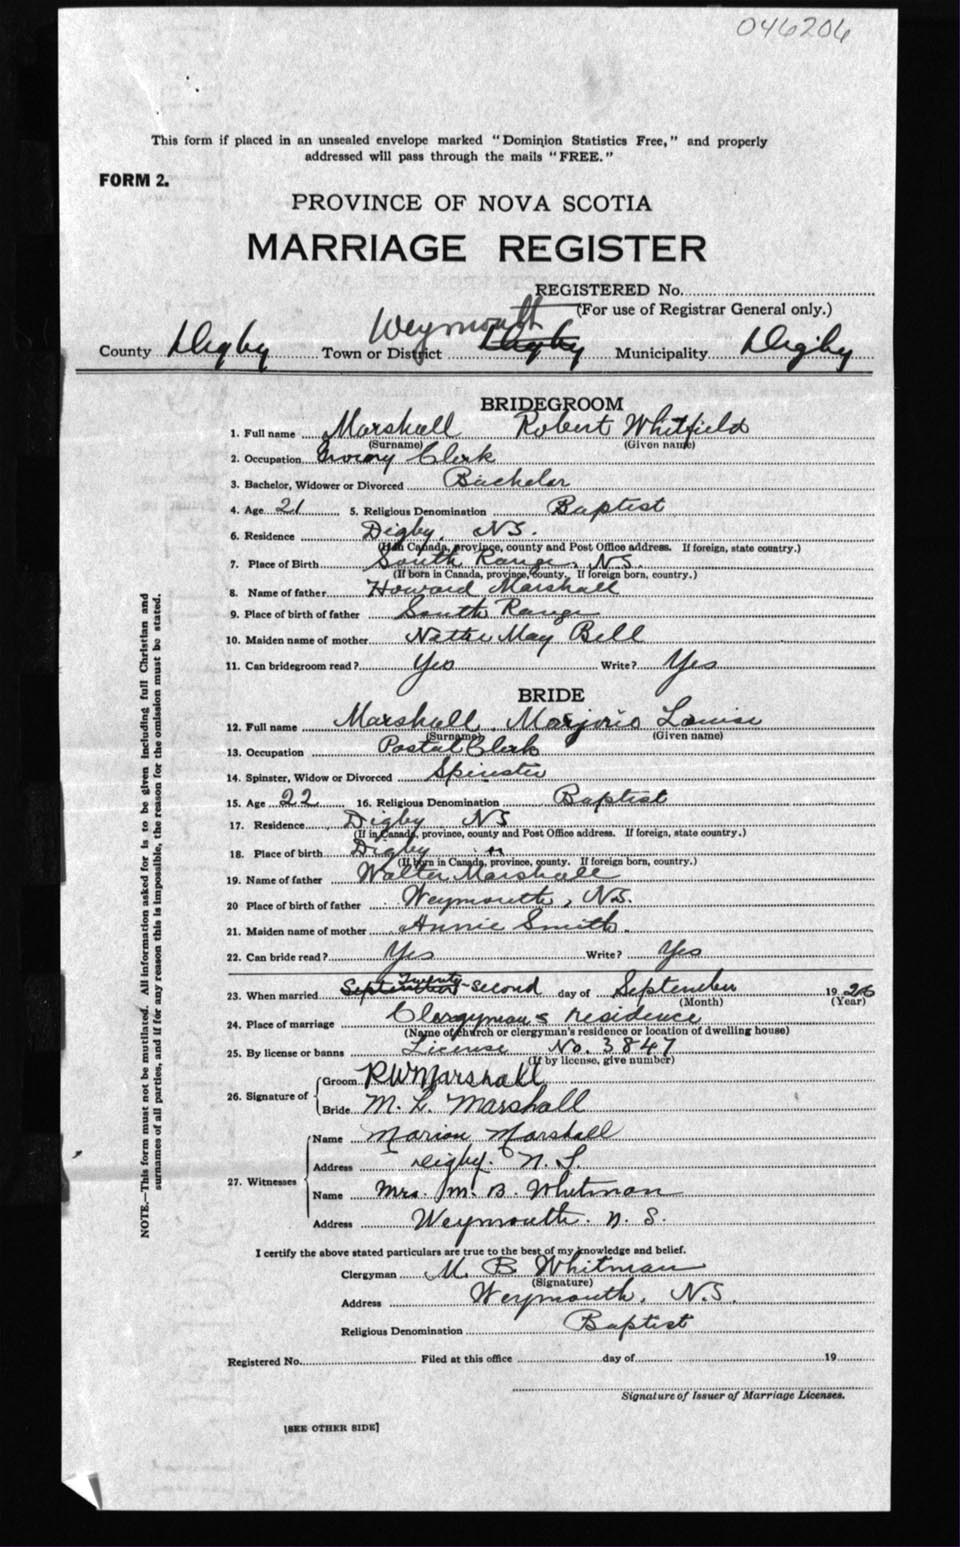 046206
This form if placed in an unsealed envelope marked "Dominion Statistics Free," and properly
addressed will pass through the mails "FREE."
FORM 2.
PROVINCE OF NOVA SCOTIA
MARRIAGE REGISTER
REGISTERED No.
(For use of Registrar General only.)
Weymouth
County Digby Town or District Digby Municipality Digby
BRIDEGROOM
1. Full name Marshall Robert Whitfield
(Surname) (Given name)
2. Occupation Grocery Clerk
3. Bachelor, Widower or Divorced Bachelor
4. Age 21 5. Religious Denomination Baptist
6. Residence Digby, NS.
(If in Canada, province, county and Post Office address. If foreign, state country.)
7. Place of Birth South Range, N.S.
(If born in Canada, province, county. If foreign born, country.)
8. Name of father Howard Marshall
9. Place of birth of father South Range
10. Maiden name of mother Nettie May Bell
11. Can bridegroom read? Yes Write? Yes
BRIDE
12. Full name Marshall, Marjorie Louise
(Surname) (Given name)
13. Occupation Postal Clerk
14. Spinster, Widow or Divorced Spinster
15. Age 22 16. Religious Denomination Baptist
17. Residence Digby NS
(If in Canada, province, county and Post Office address. If foreign, state country.)
18. Place of birth Digby "
(If born in Canada, province, county. If foreign born, country.)
19. Name of father Walter Marshall
20 Place of birth of father Weymouth, N.S.
21. Maiden name of mother Annie Smith
22. Can bride read? Yes Write? Yes
23. When married Twenty-second day of September 1926
(Month) (Year)
24. Place of marriage Clergyman's residence
(Name of church or clergyman's residence or location of dwelling house)
25. By license or banns License No. 3847
(If by license, give number)
26. Signature of
Groom RWMarshall
Bride M. L. Marshall
27. Witnesses
Name Marion Marshall
Address Digby. N. S.
Name Mrs. M. B. Whitman
Address Weymouth. N. S.
I certify the above stated particulars are true to the best of my knowledge and belief.
Clergyman M. B Whitman
(Signature)
Address Weymouth, N.S.
Religious Denomination Baptist
Registered No. Filed at this office day of 19
Signature of Issuer of Marriage Licenses.
[SEE OTHER SIDE]
NOTE.—This form must not be mutilated. All information asked for is to be given including full Christian and
surnames of all parties, and if for any reason this is impossible, the reason for the omission must be stated.